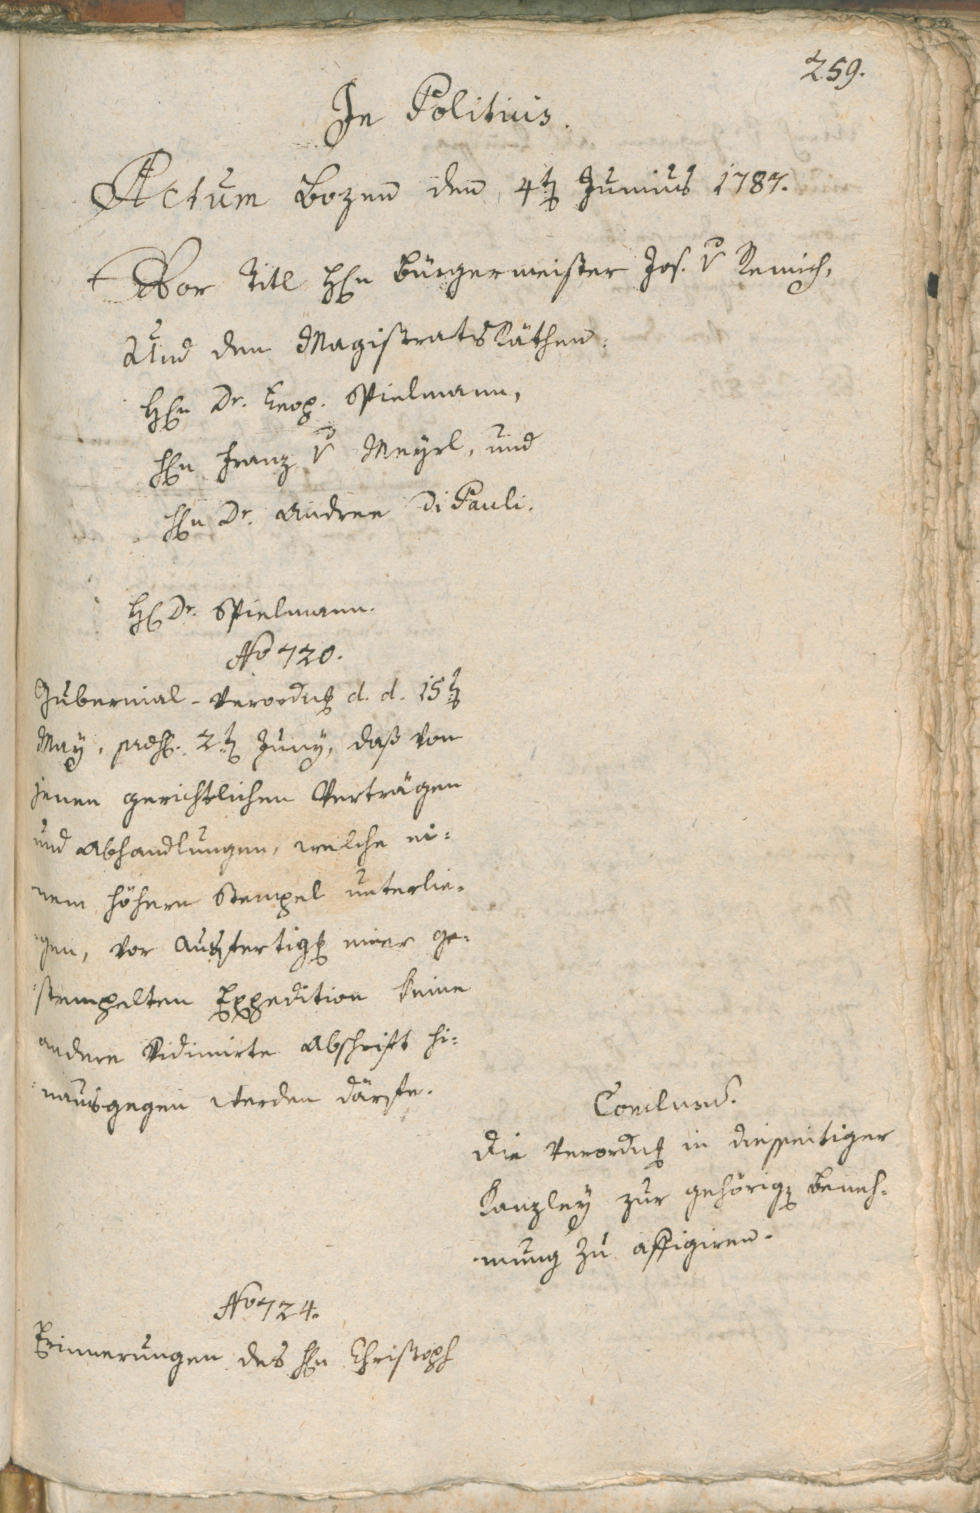 259.
In Politicis.
Actum Bozen den 4t Junius 1787.
Vor Titl H Bürgermeister Jos. v Remich,
Und den Magistrats Räthen.
H Dr. Leop. Spielmann,
H Franz v Meyrl, und
H Dr. Andree Di Pauli.
H Dr. Spielmann.
No 720.
Gubernial-Verordng d. d. 15t
May, 2t Juny, daß von
jenen gerichtlichen Verträgen
und Abhandlungen, welche ei-
nem höhern Stempel unterlie-
gen, vor Ausfertigg einer ge-
stempelten Expedition keine
andere Vidimirte Abschrift hi-
nausgegen werden därfte.
Conclusum.
Die Verordng in diesseitiger
Kanzley zur gehörig Beneh-
mung zu affigiren.
No 724.
Erinnerungen des H Christoph